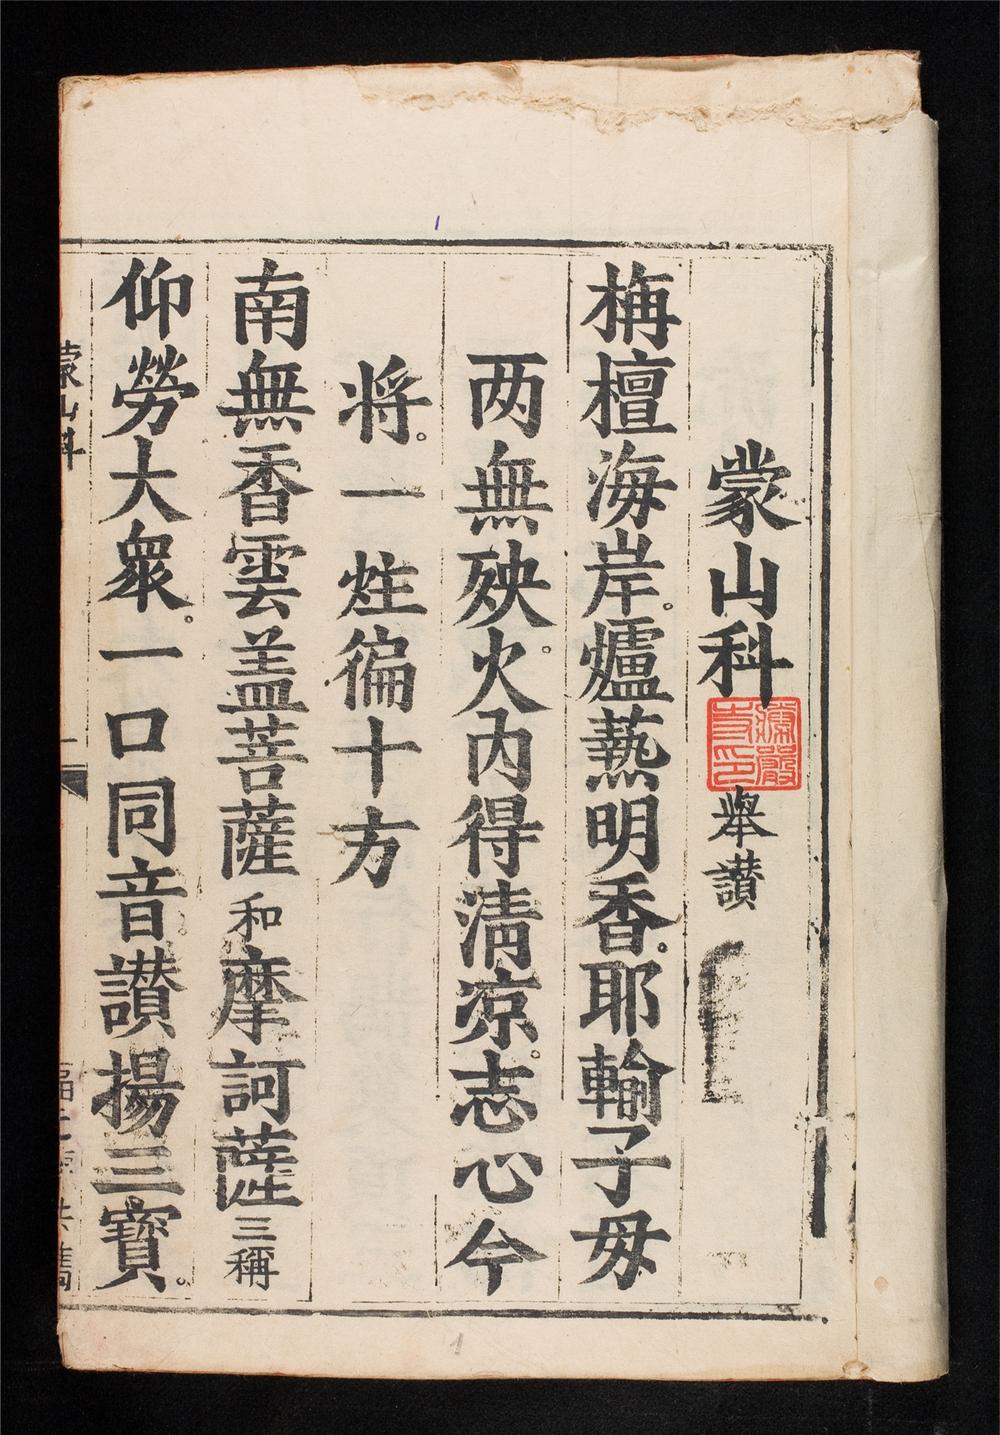 蒙山科 舉讃
栴檀海岸。爐爇明香。耶輸子毋
两無殃。火内得清凉。志心今
将。一炷徧十方
南無香雲盖菩薩 和 摩訶薩 三稱
仰勞大衆。一口同音讃揚三寶。
蒙山科
一